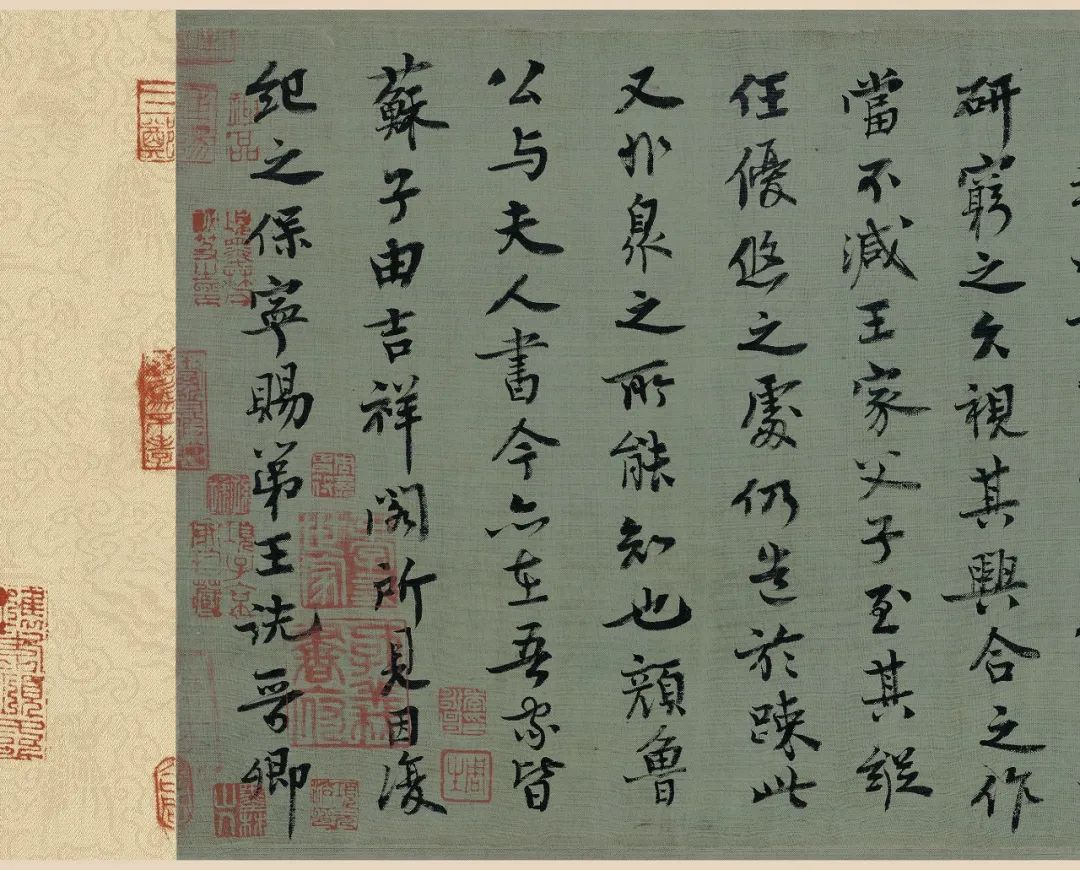 研窮之久視其興合之作
當不減王家父子至其縱
任優悠之處仍造於疎此
又非衆之所能知也顏魯
公与夫人書今亦在吾家皆
蘇子由吉祥閣所見因復
紀之保寧賜第王詵晉卿